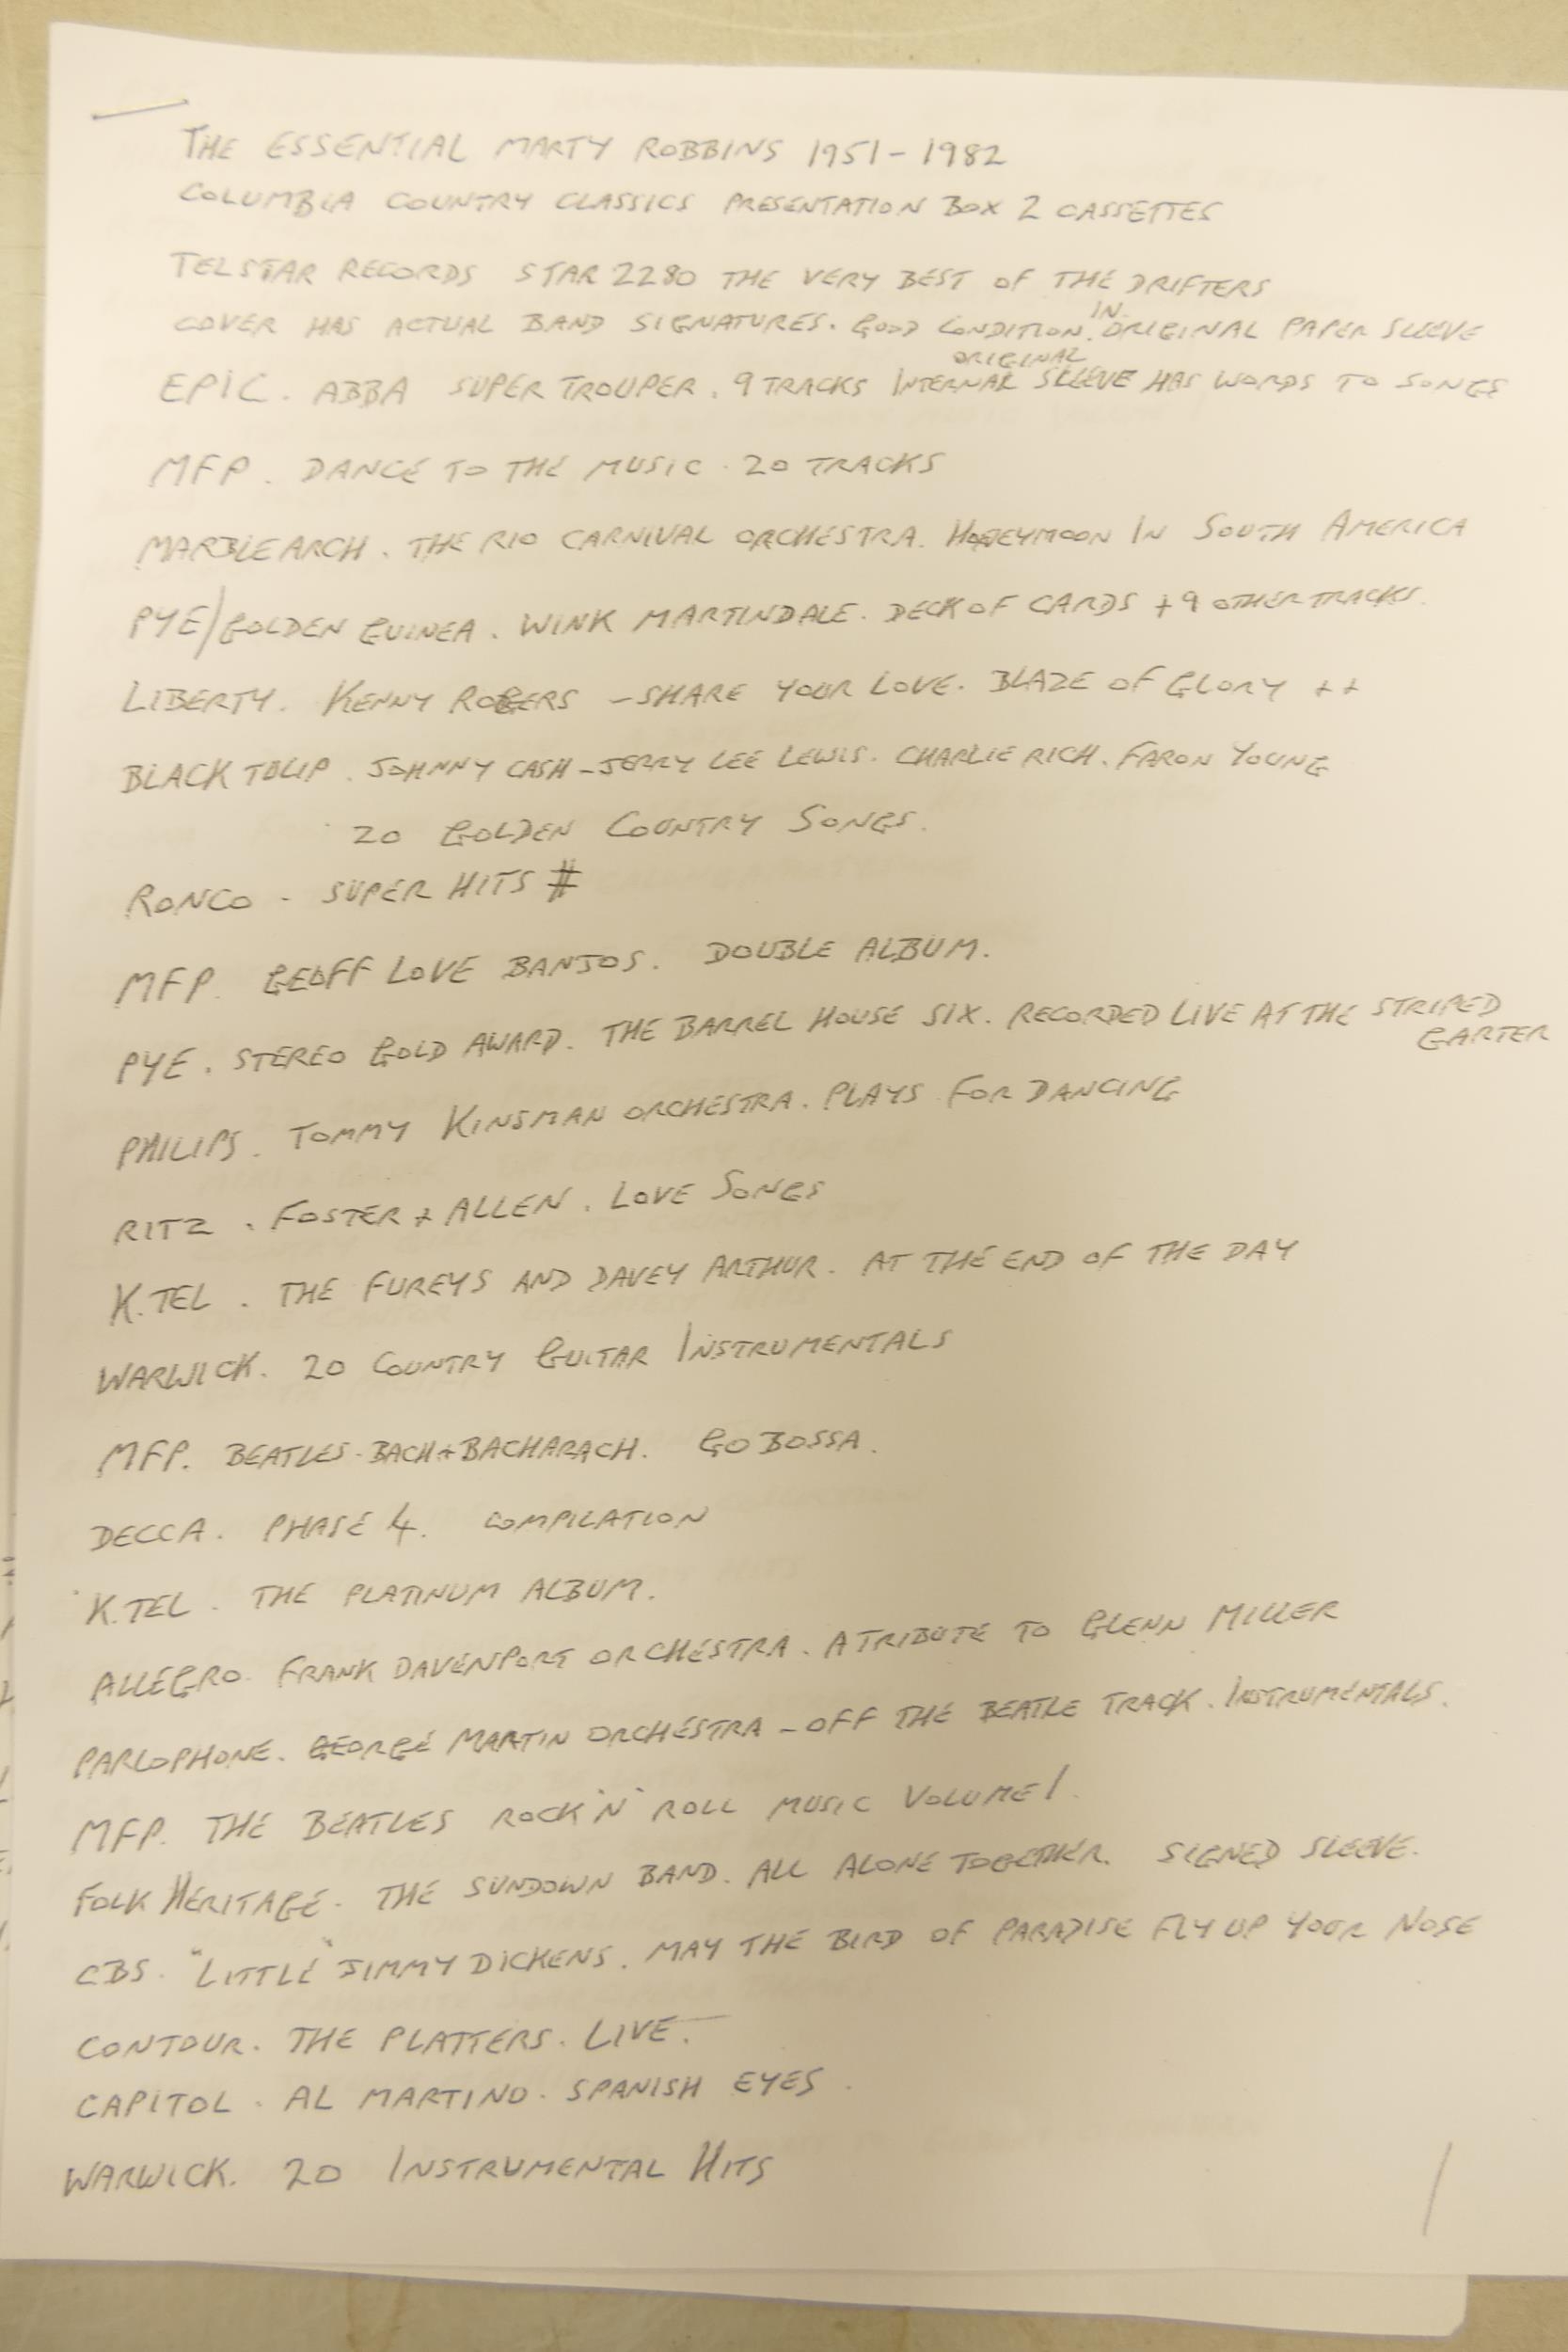 THE ESSENTIAL MARTY ROBBINS 1951 - 1982
COLUMBIA COUNTRY CLASSICS PRESENTATION BOX 2 CASSETTES
TELSTAR RECORDS STAR 2280 THE VERY BEST OF THE DRIFTERS
COVER HAS ACTUAL BAND SIGNATURES. GOOD CONDITION. IN ORIGINAL PAPER SLEEVE
EPIC. ABBA SUPER TROUPER. 9 TRACKS ORIGINAL INTERNAL SLEEVE HAS WORDS TO SONGS
MFP. DANCE TO THE MUSIC. 20 TRACKS
MARBLE ARCH. THE RIO CARNIVAL ORCHESTRA. HONEYMOON IN SOUTH AMERICA
PYE/GOLDEN GUINEA. WINK MARTINDALE. DECK OF CARDS + 9 OTHER TRACKS.
LIBERTY. KENNY ROGERS - SHARE YOUR LOVE. BLAZE OF GLORY ++
BLACK TULIP. JOHNNY CASH - JERRY LEE LEWIS. CHARLIE RICH. FARON YOUNG
20 GOLDEN COUNTRY SONGS.
RONCO - SUPER HITS #
MFP. GEOFF LOVE BANJOS. DOUBLE ALBUM.
PYE. STEREO GOLD AWARD. THE BARREL HOUSE SIX. RECORDED LIVE AT THE STRIPED
GARTER
PHILIPS. TOMMY KINSMAN ORCHESTRA. PLAYS FOR DANCING
RITZ. FOSTER + ALLEN. LOVE SONGS
K.TEL. THE FUREYS AND DAVEY ARTHUR. AT THE END OF THE DAY
WARWICK. 20 COUNTRY GUITAR INSTRUMENTALS
MFP. BEATLES - BACH + BACHARACH. GO BOSSA.
DECCA. PHASE 4. COMPILATION
K.TEL. THE PLATINUM ALBUM.
ALLEGRO. FRANK DAVENPORT ORCHESTRA. A TRIBUTE TO GLENN MILLER
PARLOPHONE. GEORGE MARTIN ORCHESTRA - OFF THE BEATLE TRACK. INSTRUMENTALS.
MFP. THE BEATLES ROCK 'N' ROLL MUSIC VOLUME 1.
FOLK HERITAGE. THE SUNDOWN BAND. ALL ALONE TOGETHER. SIGNED SLEEVE.
CBS. "LITTLE" JIMMY DICKENS. MAY THE BIRD OF PARADISE FLY UP YOUR NOSE
CONTOUR. THE PLATTERS. LIVE.
CAPITOL. AL MARTINO. SPANISH EYES.
WARWICK. 20 INSTRUMENTAL HITS
1